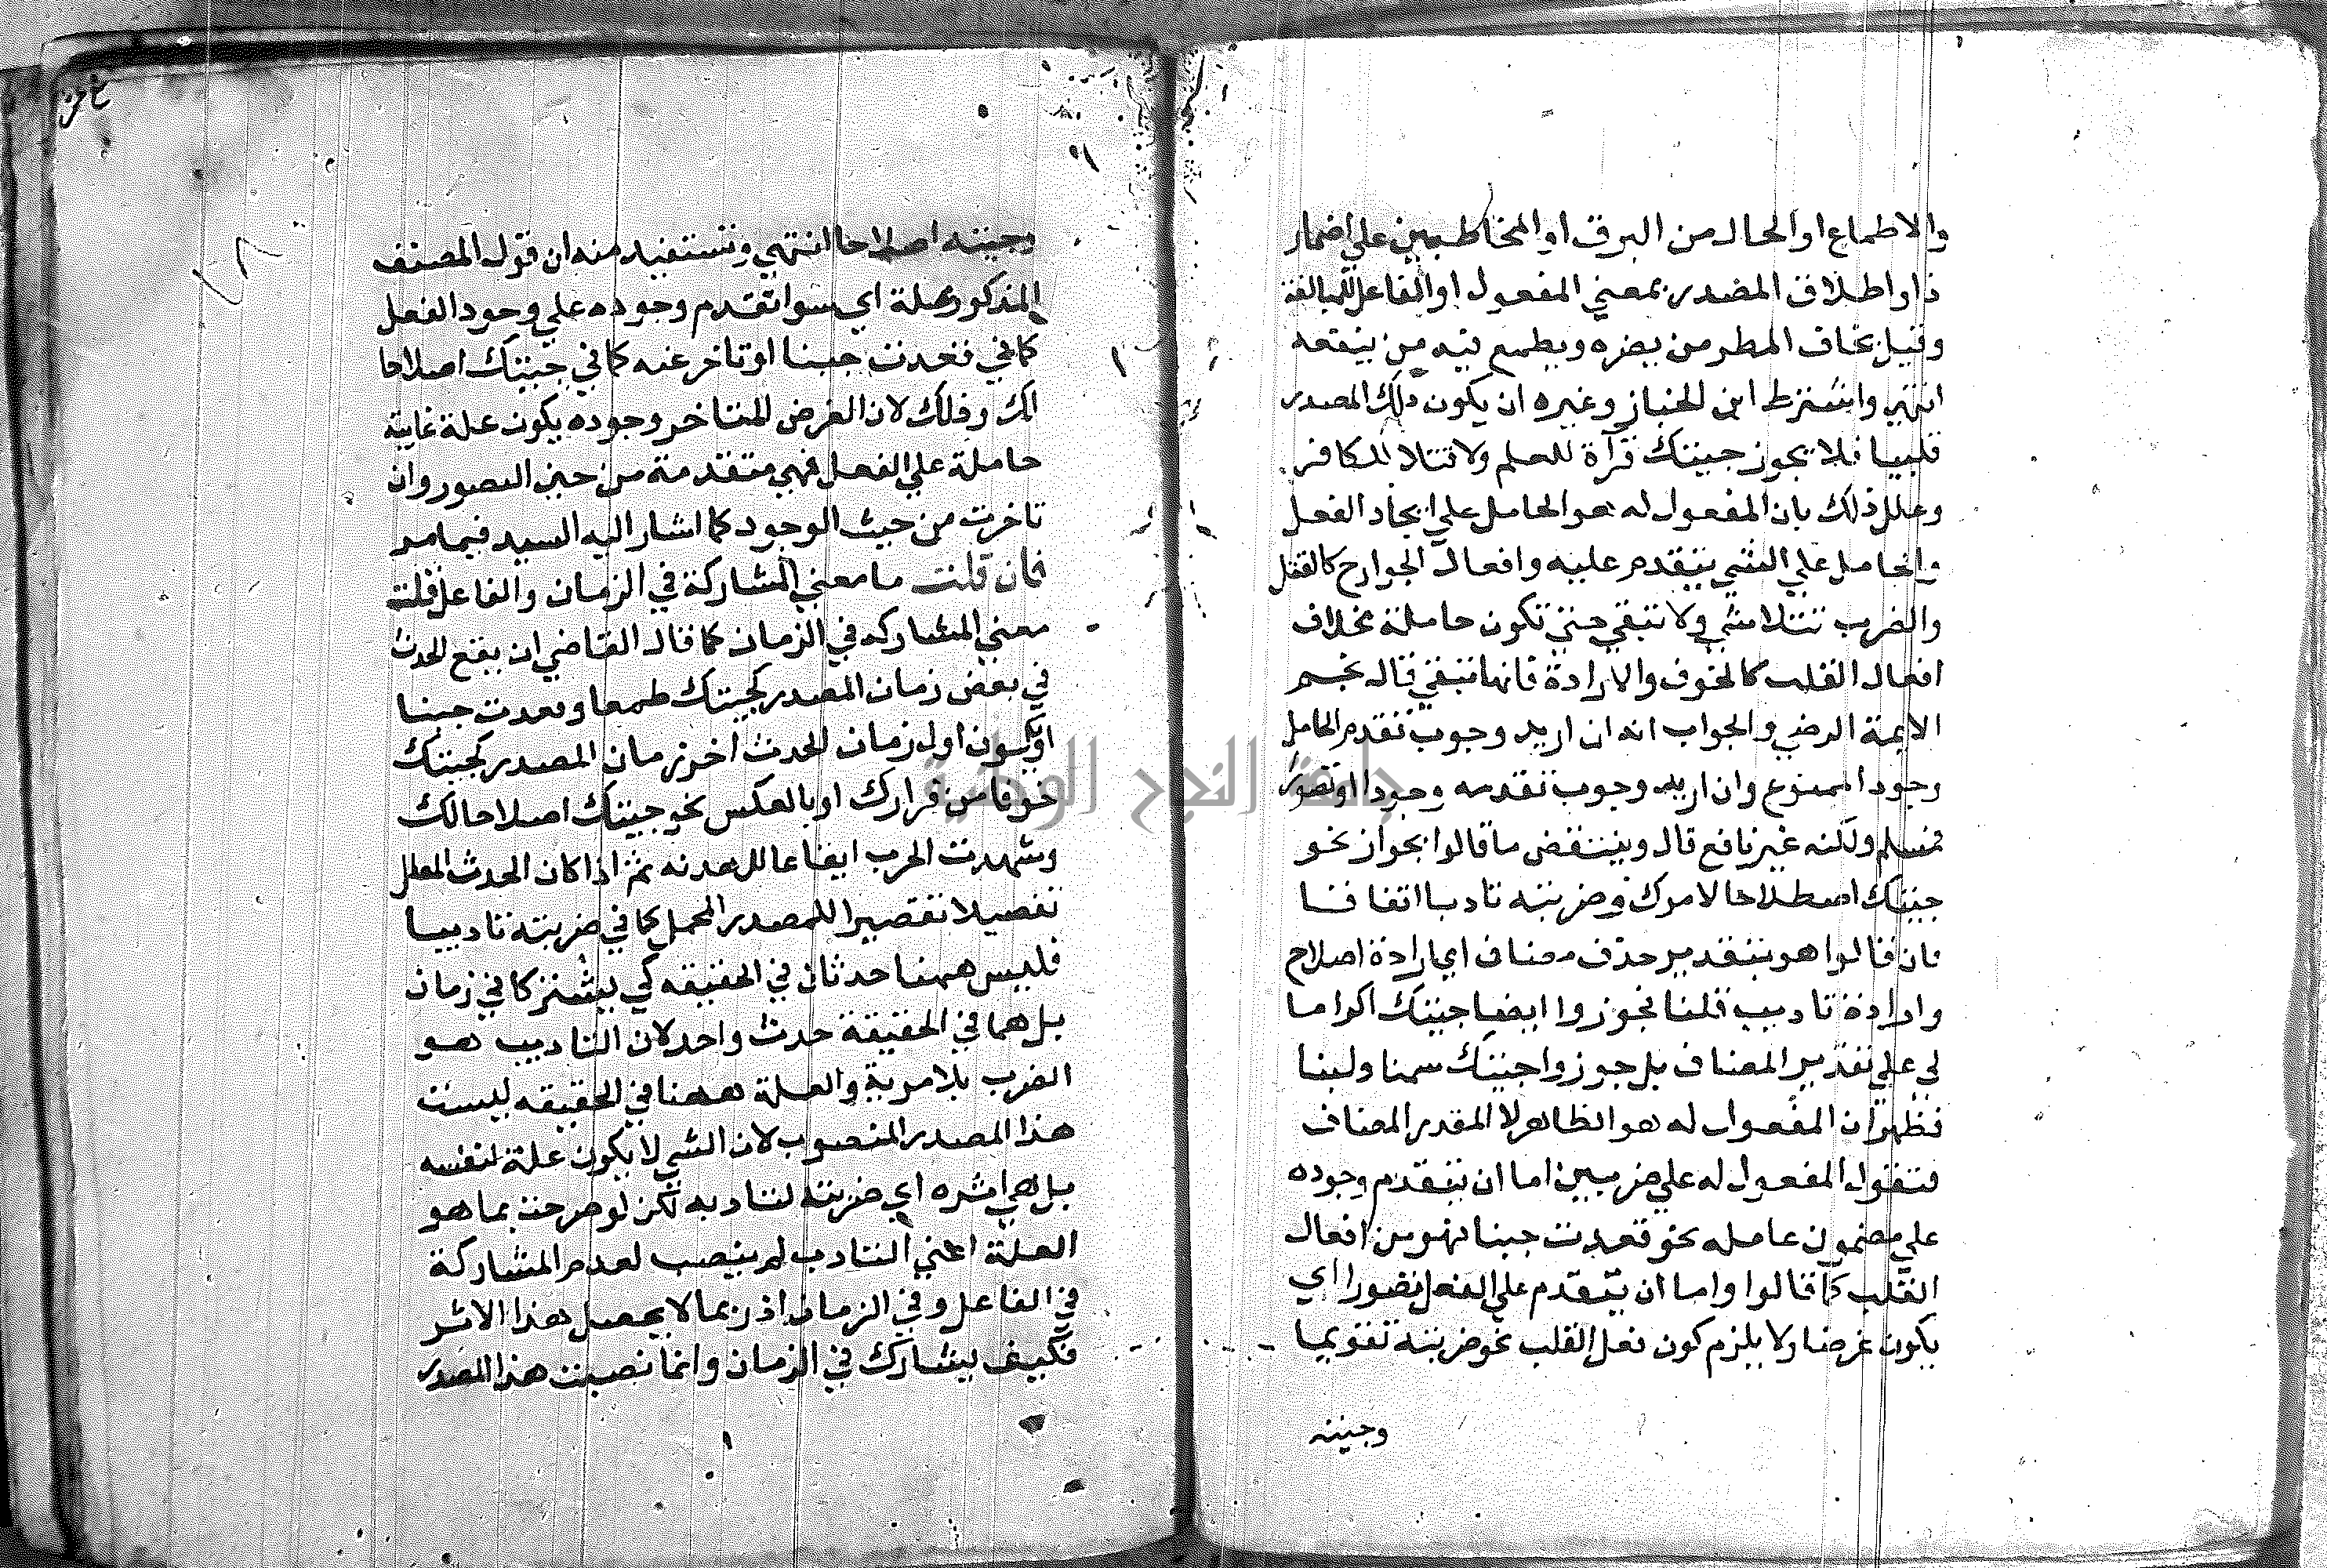 والاطماع او الحال من البرق او المخاطبين علي اضمار
ذا واطلاق المصدر بمعني المفعول او الفاعل للمبالغة
وقيل يخاف المطر من يضره ويطمع فيه من ينفعه
انتهي واشترط ابن الخباز وغيره ان يكون ذلك المصدر
قلبيا فلا يجوز جيتك قرآة للعلم ولا قتلا للكافر
وعلل ذلك بان المفعول له هو الحامل علي ايجاد الفعل
والحامل علي الشي يتقدم عليه وافعال الجوارح كالقتل
والضرب تتلاشي ولا تبقي حتي تكون حاملة بخلاف
افعال القلب كالخوف والارادة فانها تبقي قال نجم
الايمة الرضي والجواب انه ان اريد وجوب تقدم الحامل
وجودا فممنوع وان اريد وجوب تقدمه وجودا او تصورا
فمسلم ولكنه غير نافع قال وينتقض ما قالوا بجواز نحو
جيتك اصطلاحا لامرك وضربته تاديبا اتفاقا
فان قالوا هو بتقدير حذف مضاف اي ارادة اصلاح
وارادة تاديب قلنا فجوزوا ايضا جيتك اكراما
لي علي تقدير المضاف بل جوزوا جيتك سمنا ولبنا
فظهر ان المفعول له هو الظاهر لا المقدر المضاف
فنقول المفعول له علي ضربين اما ان يتقدم وجوده
علي مضمون عامله نحو قعدت جبنا فهو من افعال
القلب كما قالوا واما ان يتقدم علي الفعل تصورا اي
يكون غرضا ولا يلزم كون فعل القلب نحو ضربته تقويما
وجيته
وجيته اصلاحا انتهي وتستفيد منه ان قول المصنف
المذكور علة اي سوا تقدم وجوده علي وجود الفعل
كما في قعدت جبنا او تاخر عنه كما في جيتك اصلاحا
لك وذلك لان الغرض المتاخر وجوده يكون علة غاية
حاملة علي الفعل فهي متقدمة من حيث التصور وان
تاخرت من حيث الوجود كما اشار اليه السيد فيما مر
فان قلت ما معني المشاركة في الزمان والفاعل قلت
معني المشاركه في الزمان كما قال القاضي ان يقع الحدث
في بعض زمان المصدر كجيتك طمعا وقعدت جبنا
او يكون اول زمان الحدث اخر زمان المصدر كجيتك
خوفا من فرارك او بالعكس نحو جيتك اصلاحا لك
وشهدت الحرب ايقاعا للهدنه ثم اذا كان الحدث المعلل
تفصيلا تفسيرا للمصدر المجمل كما في ضربته تاديبا
فليس ههنا حدثان في الحقيقه كي يشتركا في زمان
بل هما في الحقيقة حدث واحد لان التاديب هو
الضرب بلا مرية والعلة ههنا في الحقيقه ليست
هذا المصدر المنصوب لان الشي لا يكون علة لنفسه
بل هي اثره اي ضربته لتادبه لكن لو صرحت بما هو
العلة اعني التادب لم ينصب لعدم المشاركة
في الفاعل وفي الزمان اذ ربما لا يحصل هذا الاثر
فكيف يشارك في الزمان وانما نصبت هذا المصدر
جامعة النجاح الوطنية